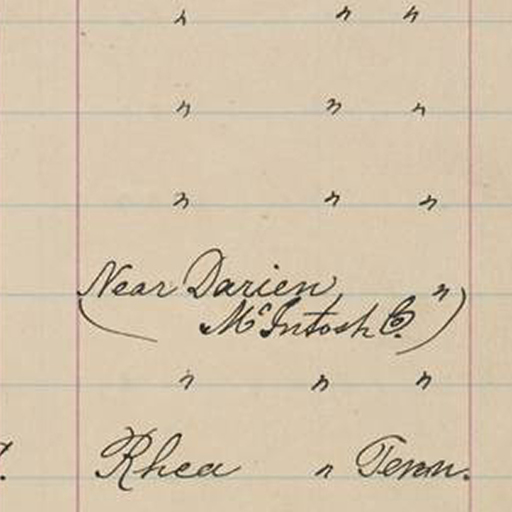 " " "
" " "
" " "
(Near Darien, "
McIntosh Co.)
" " "
Rhea " Tenn.